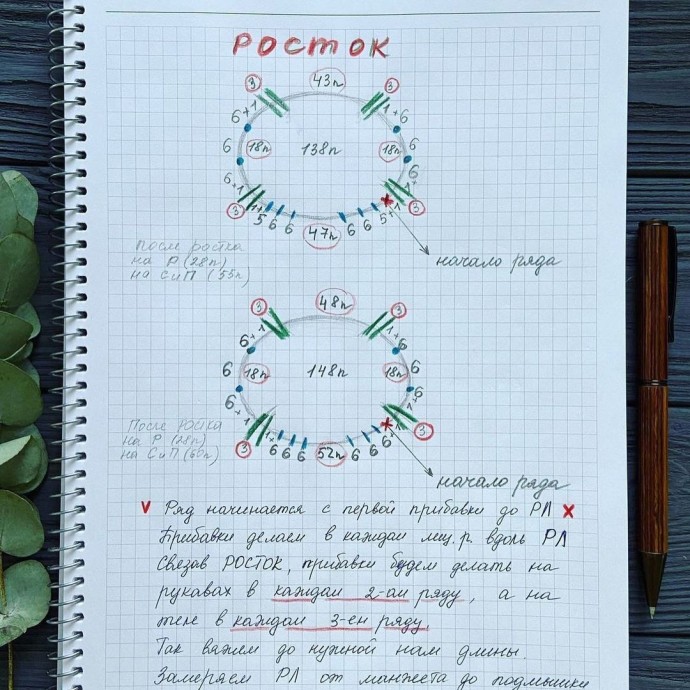 РОСТОК
3 43п 3
6+1 1+6
6 18п 138п 18п 6
6+1 1+6
3 1+5 6 6 47п 6 6 5+1 3
начало ряда
После ростка
на Р (28п)
на СиП (55п)
3 48п 3
6+1 1+6
6 18п 148п 18п 6
6+1 1+6
3 1+6 6 6 52п 6 6 6+1 3
начало ряда
После ростка
на Р (28п)
на СиП (60п)
v Ряд начинается с первой прибавки до РЛ x
Прибавки делаем в каждом лиц.р. вдоль РЛ
Связав РОСТОК, прибавки будем делать на
рукавах в каждом 2-ом ряду, а на
теле в каждом 3-ем ряду.
Так вяжем до нужной нам длины.
Замеряем РЛ от манжета до подмышки